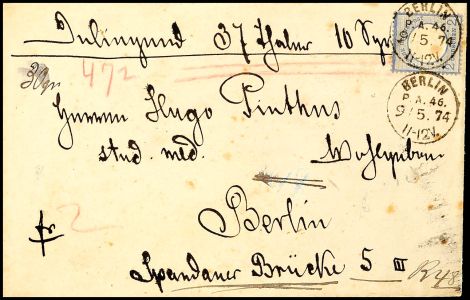 BERLIN
P.A. 46.
9/5. 74
11-12V.
37 Thaler 10 Sgr
472
BERLIN
P.A. 46.
9/5. 74
11-12V.
Herrn Hugo Pinthus
stud. med. Wohlgeborn
Berlin
fr 2
Spandauer Brücke 5 III